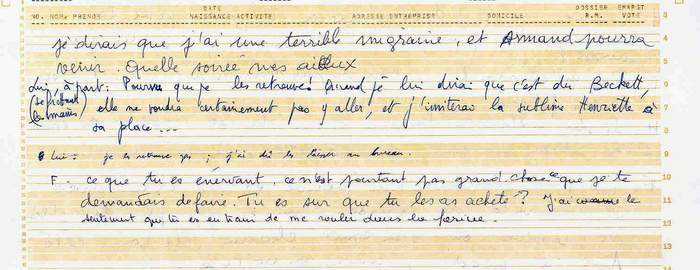 DATE DOSSIER EMARST
NO. NOM, PRENOM NAISSANCE ACTIVITE ADRESSE ENTREPRISE DOMICILE R.M. VOTE 3
je dirais que j'ai une terrible migraine, et Armand pourra 4
venir. Quelle soirée mes aïeux 5
Lui, à part : Pourvu que je les retrouve! Quand je lui dirai que c'est du Beckett, 6
(se frottant les mains) elle ne voudra certainement pas y aller, et j'inviterai la sublime Henriette à 7
sa place ... 8
Lui : je les retrouve pas ; j'ai dû les laisser au bureau. 9
F. ce que tu es énervant, ce n'est pourtant pas grand chose ce que je te 10
demandais de faire. Tu es sur que tu les as acheté ? J'ai comme le 11
sentiment que tu es en train de me rouler dans la farine. 12
13
14